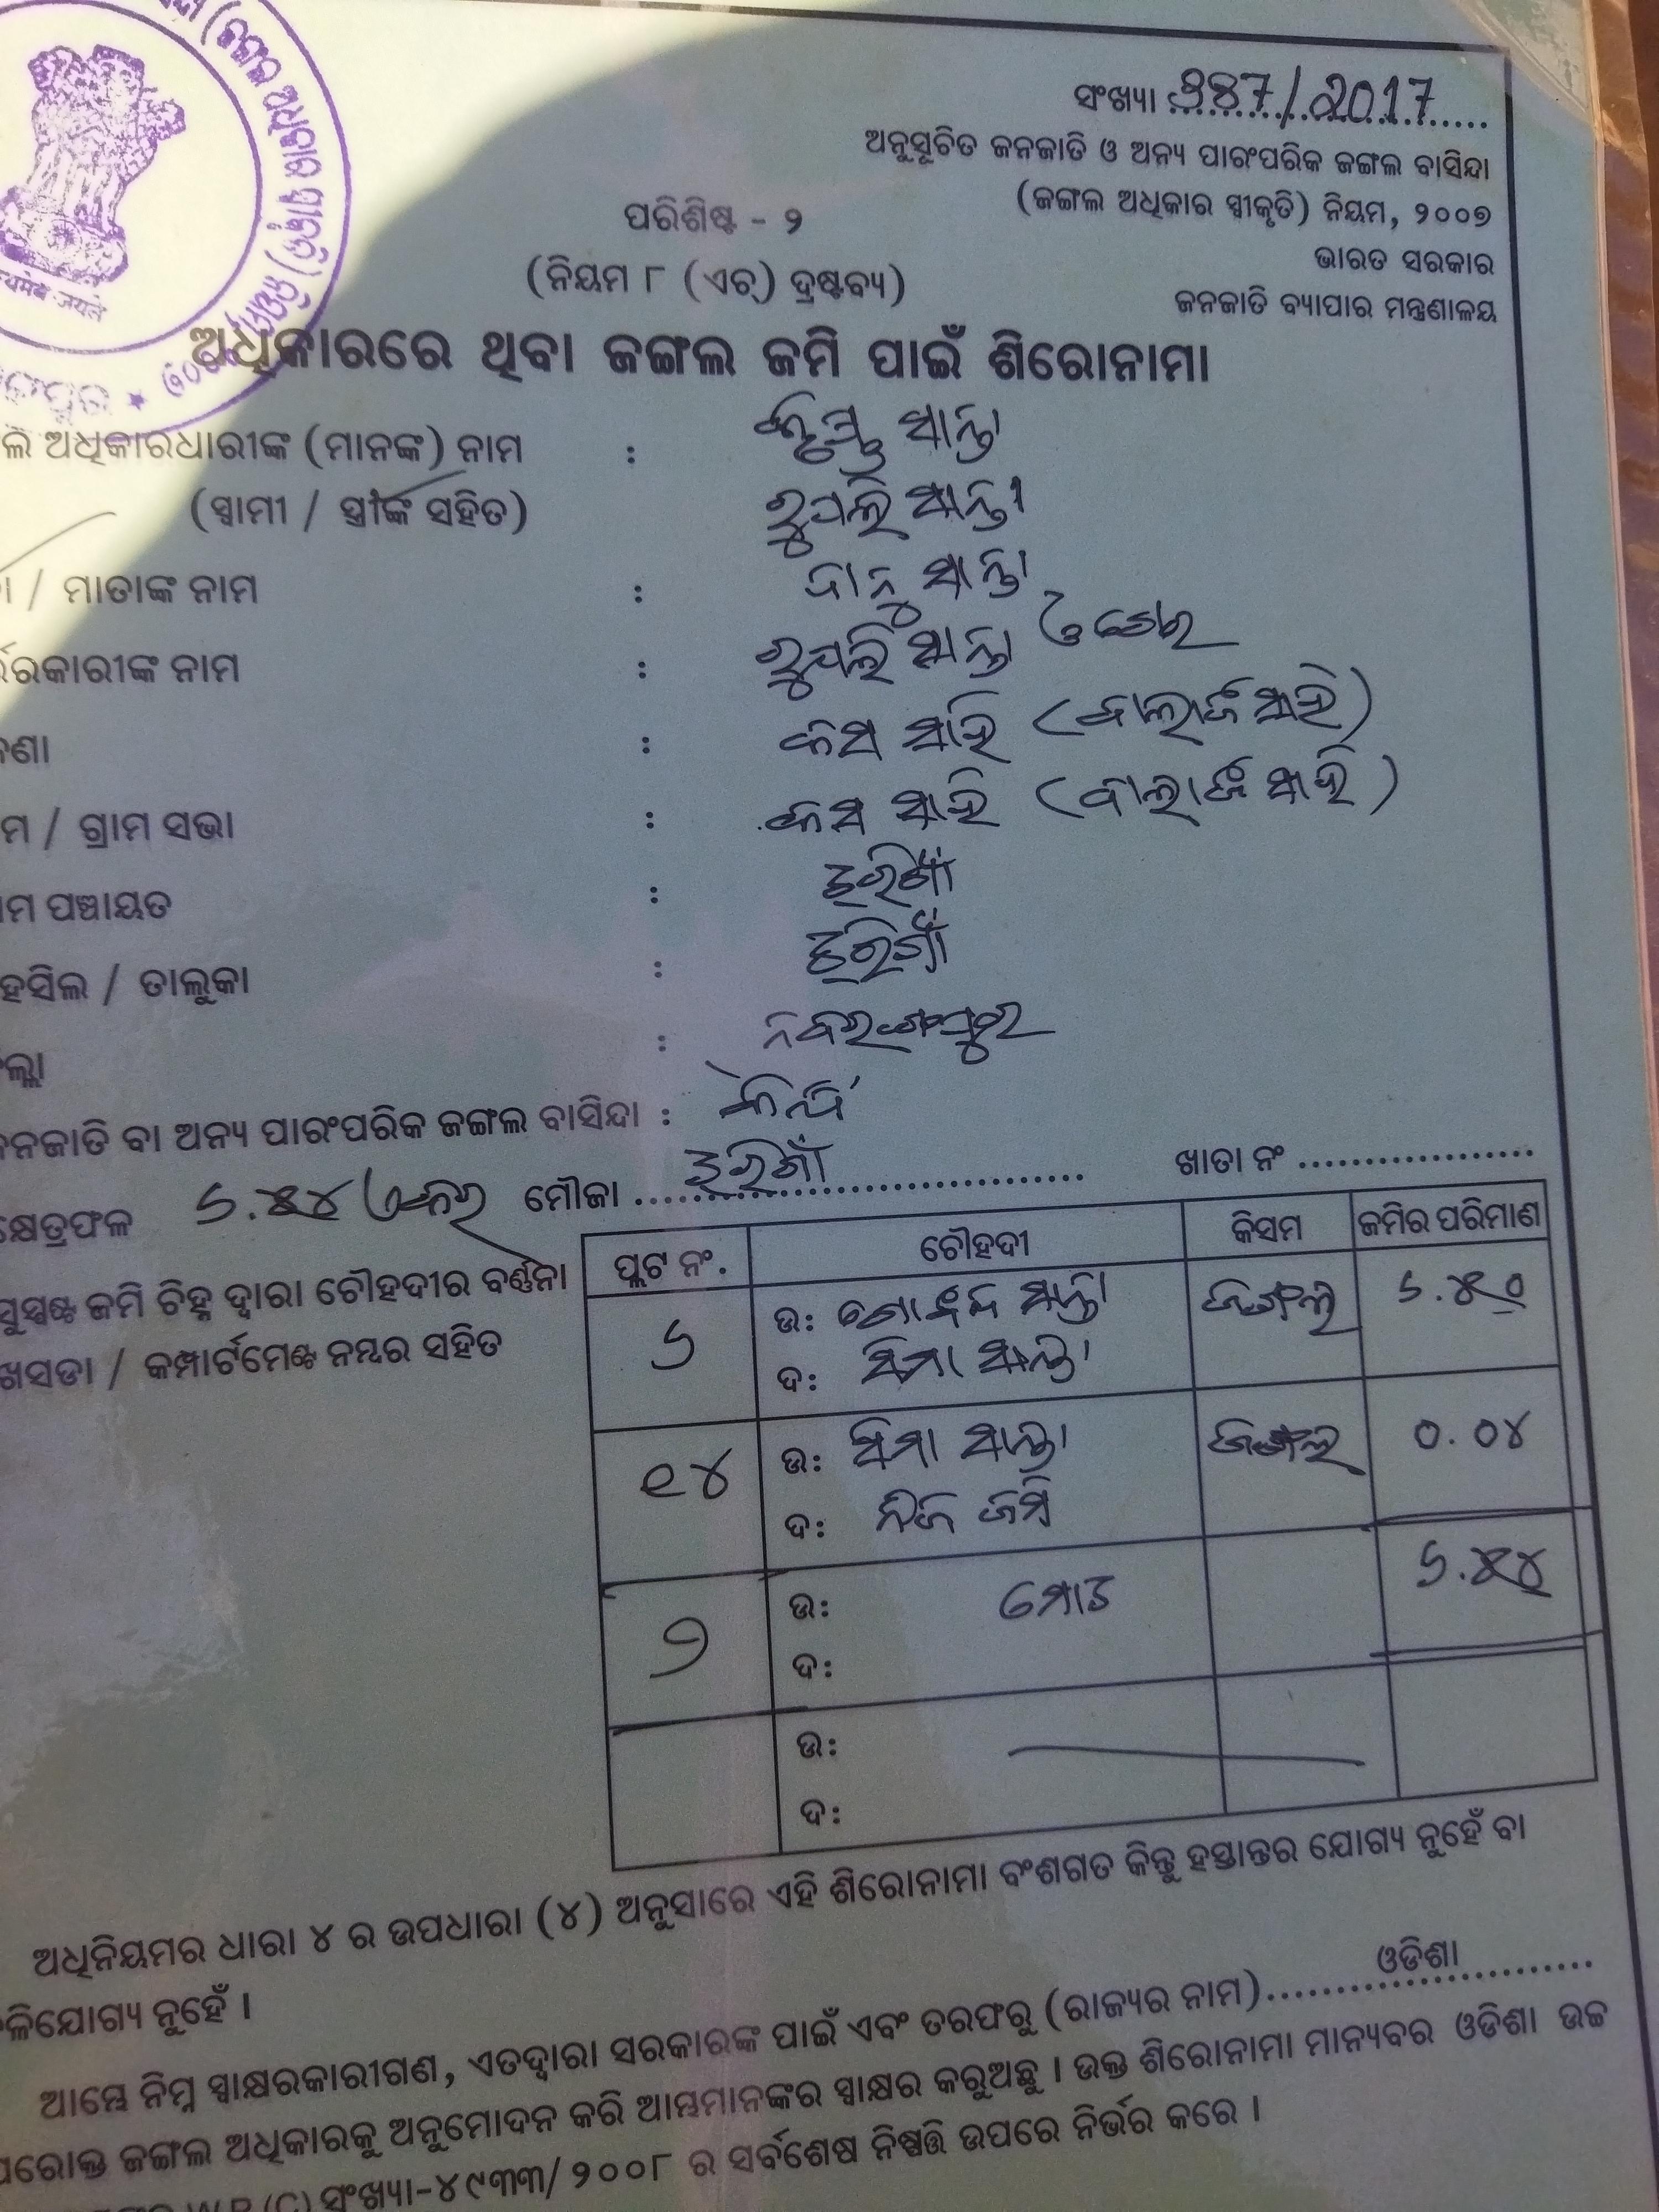 ସଂଖ୍ୟା 997/2017
ଅନୁସୂଚିତ ଜନଜାତି ଓ ଅନ୍ୟ ପାରଂପରିକ ଜଙ୍ଗଲ ବାସିନ୍ଦା
(ଜଙ୍ଗଲ ଅଧିକାର ସ୍ୱୀକୃତି) ନିୟମ, ୨୦୦୭
ପରିଶିଷ୍ଟ - ୨
ଭାରତ ସରକାର
(ନିୟମ ୮ (ଏଚ୍) ଦ୍ରଷ୍ଟବ୍ୟ)
ଜନଜାତି ବ୍ୟାପାର ମନ୍ତ୍ରଣାଳୟ
ଅଧିକାରରେ ଥିବା ଜଙ୍ଗଲ ଜମି ପାଇଁ ଶିରୋନାମା
ଅଧିକାରଧାରୀଙ୍କ (ମାନଙ୍କ) ନାମ : ସାନ୍ତା
(ସ୍ୱାମୀ / ସ୍ତ୍ରୀଙ୍କ ସହିତ) ରୁପଲି ସାନ୍ତା
/ ମାତାଙ୍କ ନାମ : ଦାନୁ ସାନ୍ତା
ର୍ଭରକାରୀଙ୍କ ନାମ : ରୁପଲି ସାନ୍ତା ଓ ଗେର
କଣା : ସାହି
ମ / ଗ୍ରାମ ସଭା : ସାହି
ମ ପଞ୍ଚାୟତ : ଝରିଗାଁ
ହସିଲ / ତାଲୁକା : ଝରିଗାଁ
ଲ୍ଲା : ନବରଙ୍ଗପୁର
ନଜାତି ବା ଅନ୍ୟ ପାରଂପରିକ ଜଙ୍ଗଲ ବାସିନ୍ଦା :
କ୍ଷେତ୍ରଫଳ ୨.୫୪ ଏକର ମୌଜା ଝରିଗାଁ ଖାତା ନଂ
ପ୍ଲଟ ନଂ. ଚୌହଦୀ କିସମ ଜମିର ପରିମାଣ
ସୁସ୍ପଷ୍ଟ ଜମି ଚିହ୍ନ ଦ୍ୱାରା ଚୌହଦୀର ବର୍ଣ୍ଣନା
ଖସଡା / କମ୍ପାର୍ଟମେଣ୍ଟ ନମ୍ବର ସହିତ
ଉ: ଗୋବିନ୍ଦ ସାନ୍ତା ଜଙ୍ଗଲ
ଦ: ସିମା ସାନ୍ତା
୧୪ ଉ: ସିମା ସାନ୍ତା ଜଙ୍ଗଲ ୦.୦୪
ଦ: ନିଜ ଜମି
୨ ଉ: ମୋଟ
ଦ:
ଉ:
ଦ:
ଅଧିନିୟମର ଧାରା ୪ ର ଉପଧାରା (୪) ଅନୁସାରେ ଏହି ଶିରୋନାମା ବଂଶଗତ କିନ୍ତୁ ହସ୍ତାନ୍ତର ଯୋଗ୍ୟ ନୁହେଁ ବା
ଳିଯୋଗ୍ୟ ନୁହେଁ ।
ଆମ୍ଭେ ନିମ୍ନ ସ୍ୱାକ୍ଷରକାରୀଗଣ, ଏତଦ୍ୱାରା ସରକାରଙ୍କ ପାଇଁ ଏବଂ ତରଫରୁ (ରାଜ୍ୟର ନାମ) ଓଡିଶା
ପରୋକ୍ତ ଜଙ୍ଗଲ ଅଧିକାରକୁ ଅନୁମୋଦନ କରି ଆମ୍ଭମାନଙ୍କର ସ୍ୱାକ୍ଷର କରୁଅଛୁ । ଉକ୍ତ ଶିରୋନାମା ମାନ୍ୟବର ଓଡିଶା ଉଚ୍ଚ
W.P.(C) ସଂଖ୍ୟା-୪୯୩୩/୨୦୦୮ ର ସର୍ବଶେଷ ନିଷ୍ପତ୍ତି ଉପରେ ନିର୍ଭର କରେ ।